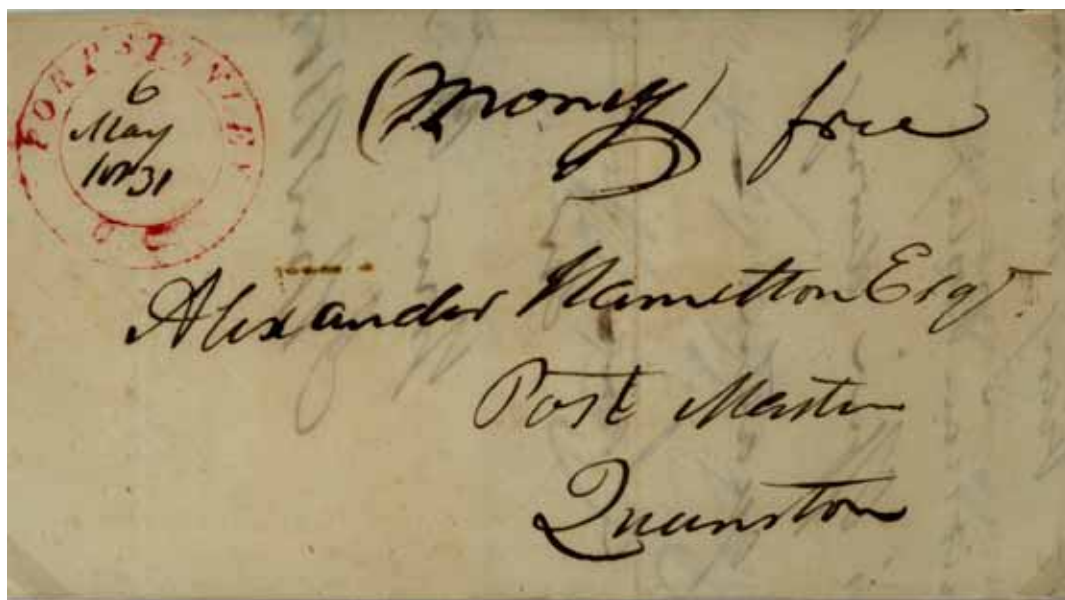 6
May
1831
(Money) free
Alexander Hamilton Esqr
Post Master
Queenston